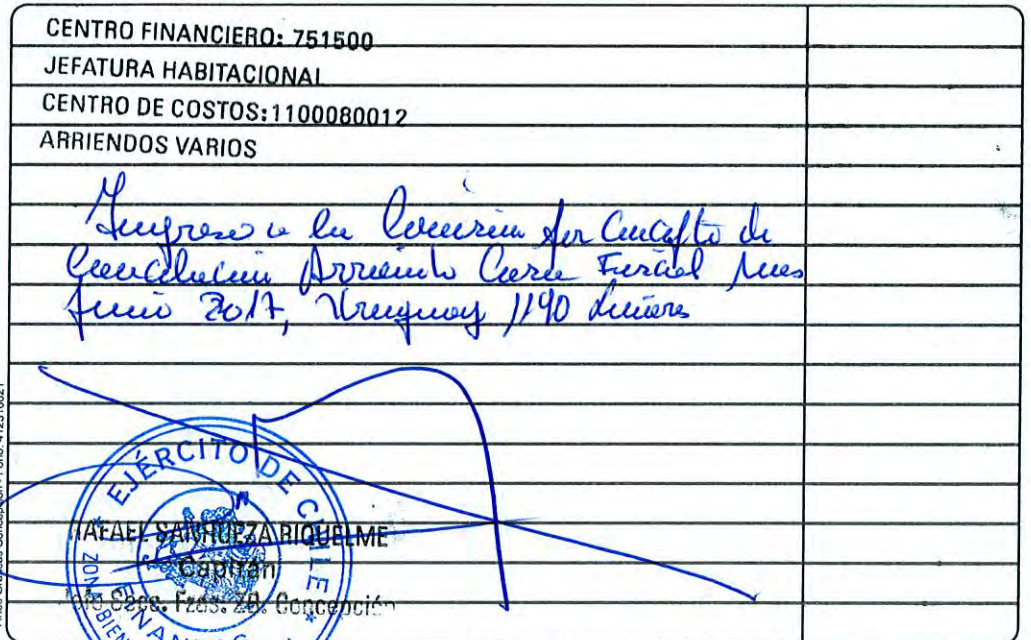 CENTRO FINANCIERO: 751500
JEFATURA HABITACIONAL
CENTRO DE COSTOS: 1100080012
ARRIENDOS VARIOS
Ingreso a la por Concepto de
Cancelación Arriendo Casa Fiscal Mes
Junio 2017, Uruguay 1190 Linares
EJÉRCITO DE CHILE
RAFAEL SANHUEZA RIQUELME
Capitán
Jefe Secc. Fzas. ZB. Concepción